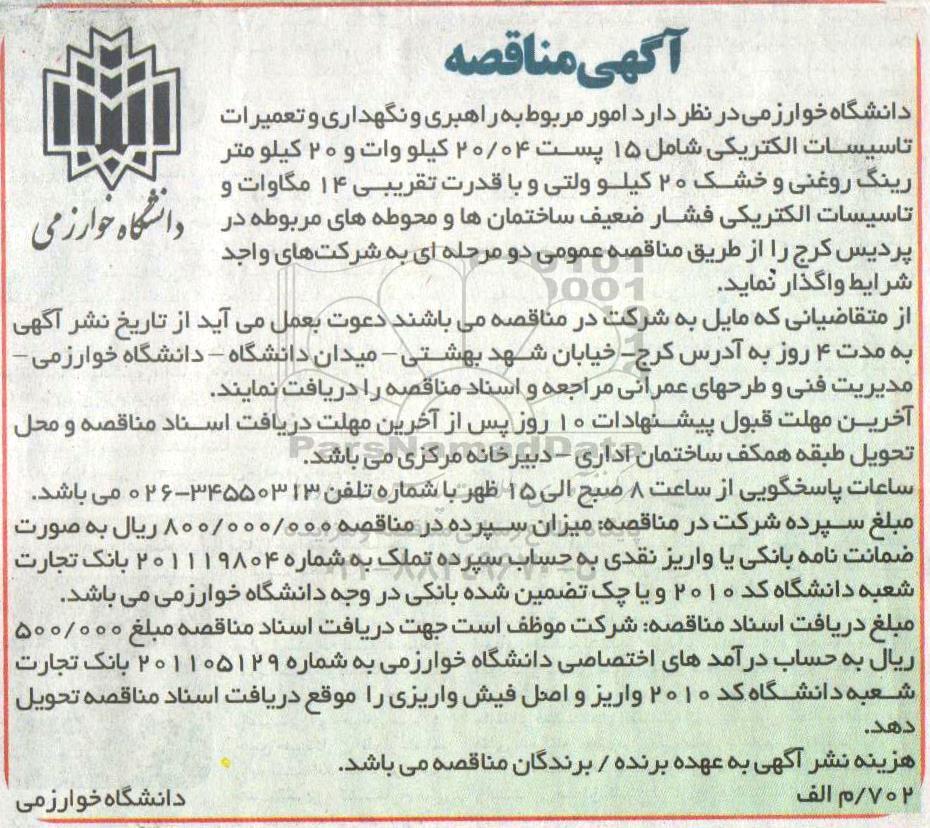 آگهی مناقصه
دانشگاه خوارزمی
دانشگاه خوارزمی در نظر دارد امور مربوط به راهبری و نگهداری و تعمیرات
تاسیسات الکتریکی شامل ۱۵ پست ۲۰/۰۴ کیلو وات و ۲۰ کیلو متر
رینگ روغنی و خشک ۲۰ کیلو ولتی و با قدرت تقریبی ۱۴ مگاوات و
تاسیسات الکتریکی فشار ضعیف ساختمان ها و محوطه های مربوطه در
پردیس کرج را از طریق مناقصه عمومی دو مرحله ای به شرکت‌های واجد
شرایط واگذار نماید.
از متقاضیانی که مایل به شرکت در مناقصه می باشند دعوت بعمل می آید از تاریخ نشر آگهی
به مدت ۴ روز به آدرس کرج- خیابان شهد بهشتی – میدان دانشگاه – دانشگاه خوارزمی –
مدیریت فنی و طرحهای عمرانی مراجعه و اسناد مناقصه را دریافت نمایند.
آخرین مهلت قبول پیشنهادات ۱۰ روز پس از آخرین مهلت دریافت اسناد مناقصه و محل
تحویل طبقه همکف ساختمان اداری – دبیرخانه مرکزی می باشد.
ساعات پاسخگویی از ساعت ۸ صبح الی ۱۵ ظهر با شماره تلفن ۳۴۵۵۰۳۱۳-۰۲۶ می باشد.
مبلغ سپرده شرکت در مناقصه: میزان سپرده در مناقصه ۸۰۰/۰۰۰/۰۰۰ ریال به صورت
ضمانت نامه بانکی یا واریز نقدی به حساب سپرده تملک به شماره ۲۰۱۱۱۹۸۰۴ بانک تجارت
شعبه دانشگاه کد ۲۰۱۰ و یا چک تضمین شده بانکی در وجه دانشگاه خوارزمی می باشد.
مبلغ دریافت اسناد مناقصه: شرکت موظف است جهت دریافت اسناد مناقصه مبلغ ۵۰۰/۰۰۰
ریال به حساب درآمد های اختصاصی دانشگاه خوارزمی به شماره ۲۰۱۱۰۵۱۲۹ بانک تجارت
شعبه دانشگاه کد ۲۰۱۰ واریز و اصل فیش واریزی را موقع دریافت اسناد مناقصه تحویل
دهد.
هزینه نشر آگهی به عهده برنده / برندگان مناقصه می باشد.
۷۰۲/م الف
دانشگاه خوارزمی
ParsNamadData